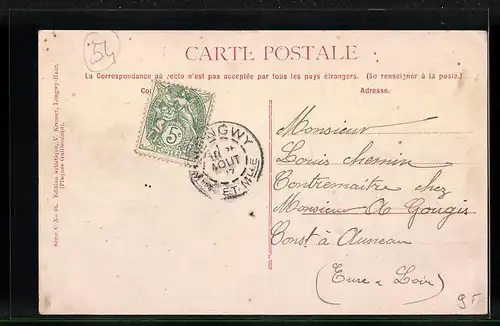 54
CARTE POSTALE
La Correspondance au recto n'est pas acceptée par tous les pays étrangers. (Se renseigner à la poste.)
Co
Adresse.
5c
LONGWY
AOUT
MTHE ET MLLE
Monsieur
Louis Chemin
Contremaitre chez
Monsieur A Gougis
Const à Auneau
(Eure & Loir)
Série C No. Edition artistique, V. Kremer, Longwy-Haut.
(Plaques Guilleminot).